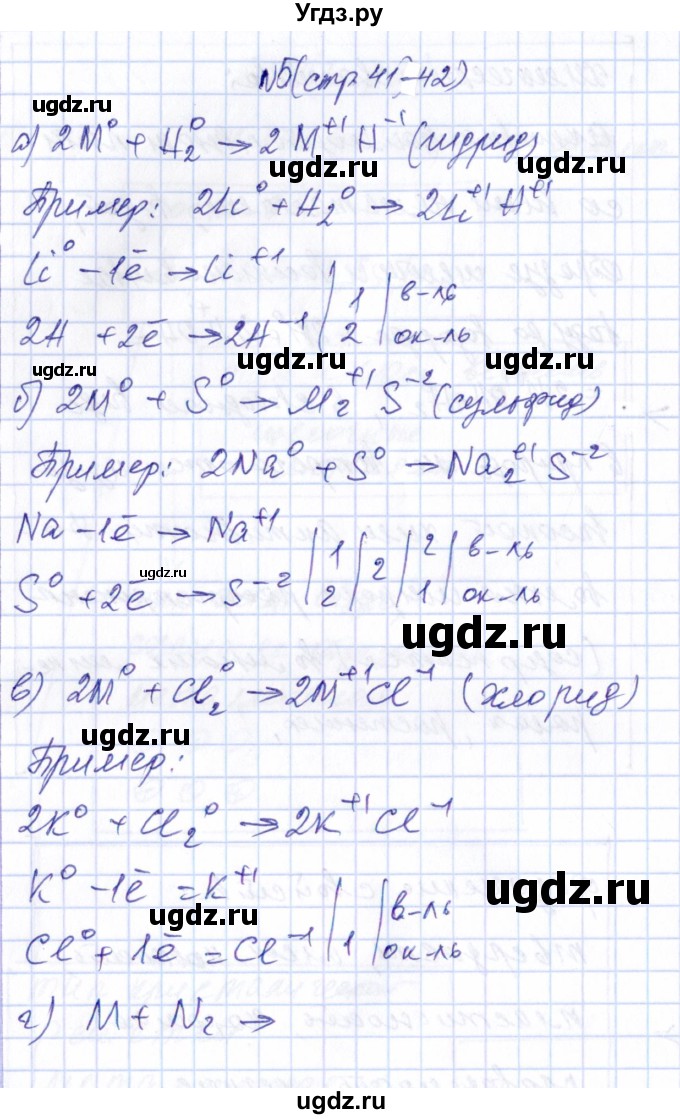 Угдз.ру
№5 (стр 41-42)
ugdz.ru
а) 2M⁰ + H₂⁰ → 2M⁺¹H⁻¹ (гидрид)
ugdz.ru
Пример: 2Li⁰ + H₂⁰ → 2Li⁺¹H⁺¹
ugdz.ru
Li⁰ - 1ē → Li⁺¹ | 1 | в-ль
2H + 2ē → 2H⁻¹ | 2 | ок-ль
ugdz.ru
ugdz.ru
б) 2M⁰ + S⁰ → M₂⁺¹S⁻² (сульфид).
Пример: 2Na⁰ + S⁰ → Na₂⁺¹S⁻²
Na - 1ē → Na⁺¹ | 1 | 2 | 2 | в-ль
ugdz.ru
S⁰ + 2ē → S⁻² | 2 | | 1 | ок-ль
ugdz.ru
в) 2M⁰ + Cl₂⁰ → 2M⁺¹Cl⁻¹ (хлорид)
ugdz.ru
Пример:
2K⁰ + Cl₂⁰ → 2K⁺¹Cl⁻¹
ugdz.ru
K⁰ - 1ē = K⁺¹ | 1 | в-ль
ugdz.ru
Cl⁰ + 1ē = Cl⁻¹ | | ок-ль
г) M + N₂ →
ugdz.ru
ugdz.ru